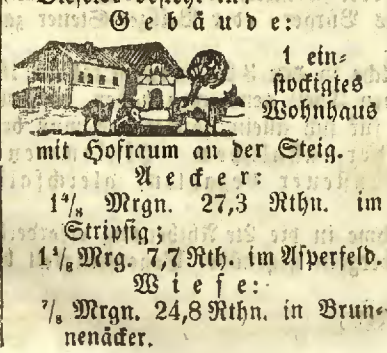 Gebäude:
1 ein-
stockigtes
Wohnhaus
mit Hofraum an der Steig.
Aecker:
1⁴/₈ Mrgn. 27,3 Rthn. im
Stripfig;
1¹/₈ Mrg. 7,7 Rth. im Asperfeld.
Wiese:
⁷/₈ Mrgn. 24,8 Rthn. in Brun-
nenäcker.